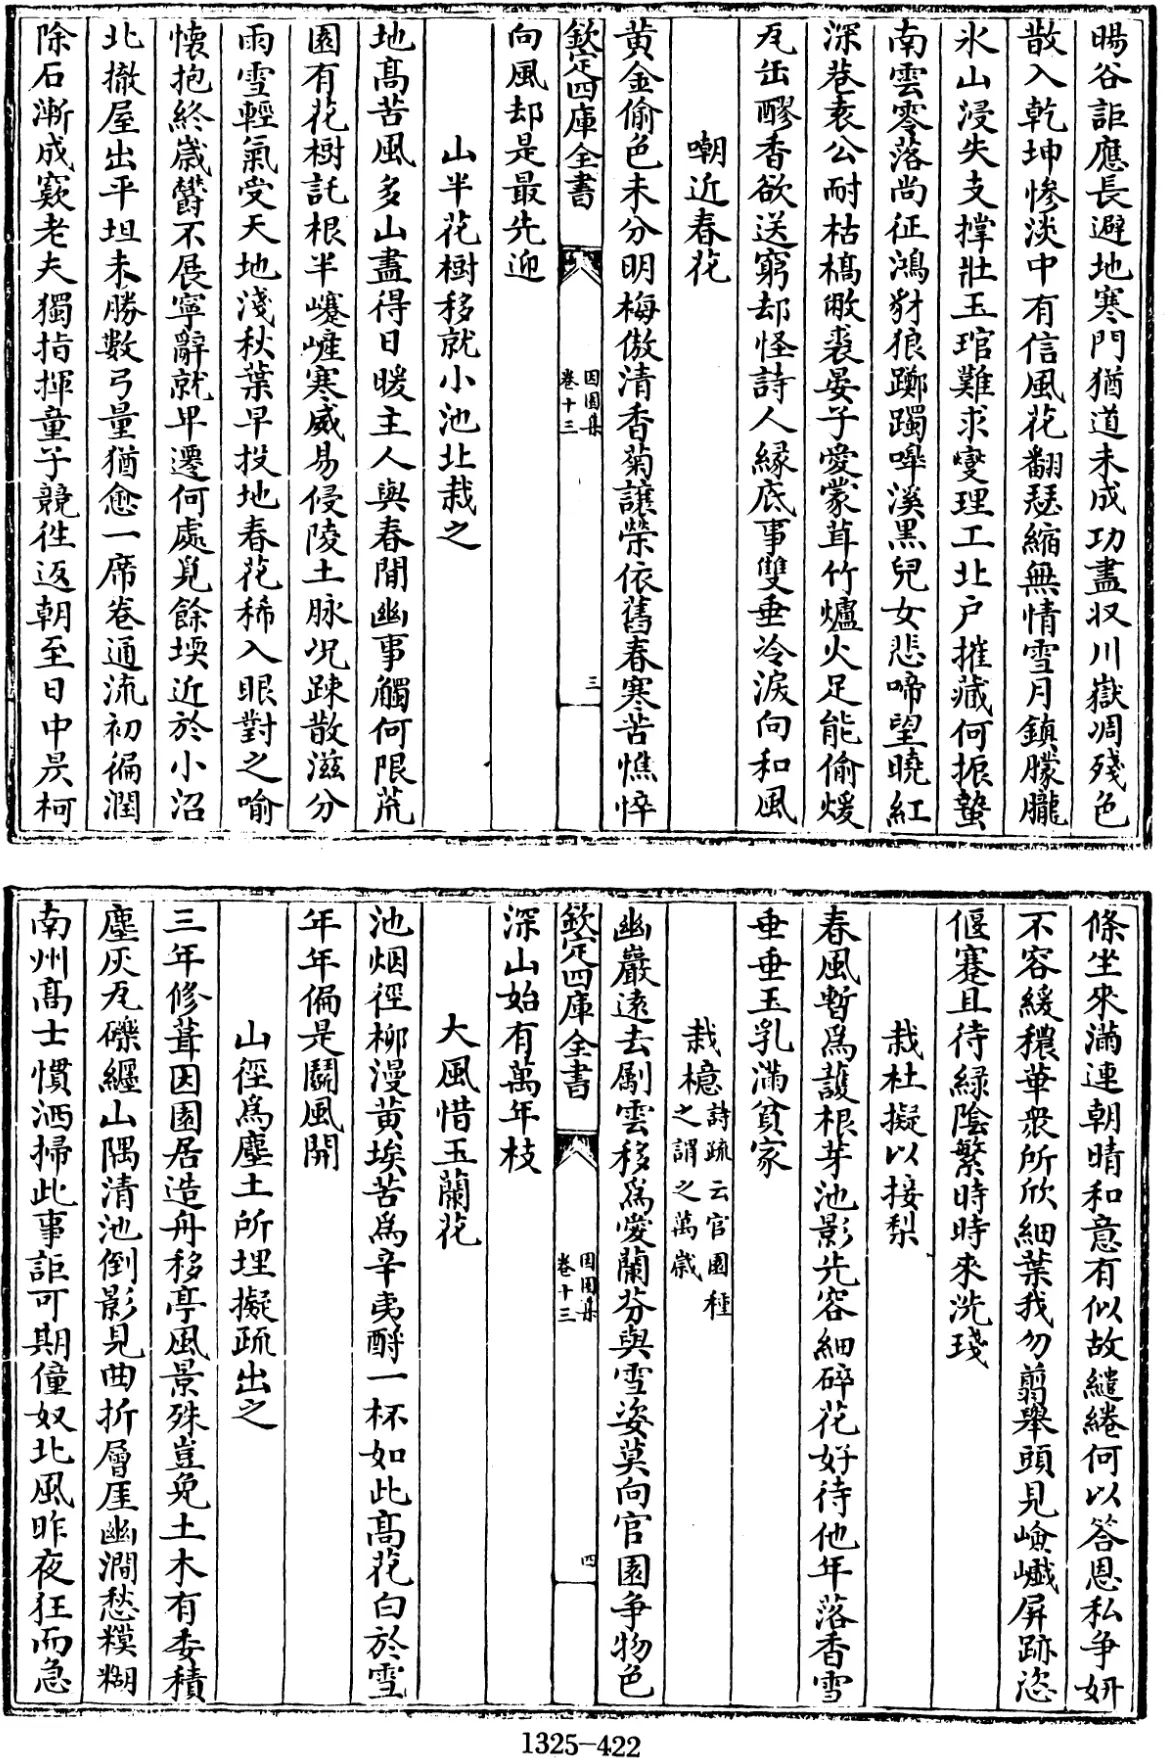 暘谷詎應長避地寒門猶道未成功盡収川嶽凋殘色
散入乾坤慘淡中有信風花翻瑟縮無情雪月鎮朦朧
氷山浸失支撑壯玉琯難求燮理工北户摧藏何振蟄
南雲零落尚征鴻豺狼躑躅嘷溪黒兒女悲啼望曉紅
深巷袁公耐枯槁敝裘晏子愛蒙茸竹爐火足能偷煖
瓦缶醪香欲送窮却怪詩人縁底事雙垂冷淚向和風
嘲近春花
黄金偷色未分明梅傲清香菊讓榮依舊春寒苦憔悴
欽定四庫全書
因園集
卷十三
三
向風却是最先迎
山半花樹移就小池北栽之
地髙苦風多山盡得日暖主人與春閒幽事觸何限荒
園有花樹託根半巉嵼寒威易侵陵土脉况踈散滋分
雨雪輕氣受天地淺秋葉早投地春花稀入眼對之喻
懐抱終嵗鬱不展寧辭就卑遷何處覓餘堧近於小沼
北撤屋出平坦未勝數弓量猶愈一席卷通流初徧潤
除石漸成窾老夫獨指揮童子競徃返朝至日中昃柯
條坐來滿連朝晴和意有似故繾綣何以答恩私争妍
不容緩穠華衆所欣細葉我勿翦舉頭見嶮巇屏跡恣
偃蹇且待緑陰繁時時來洗琖
栽杜擬以接梨
春風暫爲護根芽池影先容細碎花好待他年落香雪
垂垂玉乳滿貧家
栽檍詩疏云官園種
之謂之萬嵗
幽巖逺去劚雲移爲愛蘭芬與雪姿莫向官園争物色
欽定四庫全書
因園集
卷十三
四
深山始有萬年枝
大風惜玉蘭花
池烟徑柳漫黄埃苦爲辛夷酹一杯如此髙花白於雪
年年偏是鬭風開
山徑爲塵土所埋擬疏出之
三年修葺因園居造舟移亭風景殊豈免土木有委積
塵灰瓦礫纒山隅清池倒影見曲折層厓幽澗愁糢糊
南州髙士慣洒掃此事詎可期僮奴北風昨夜狂而急
1325-422